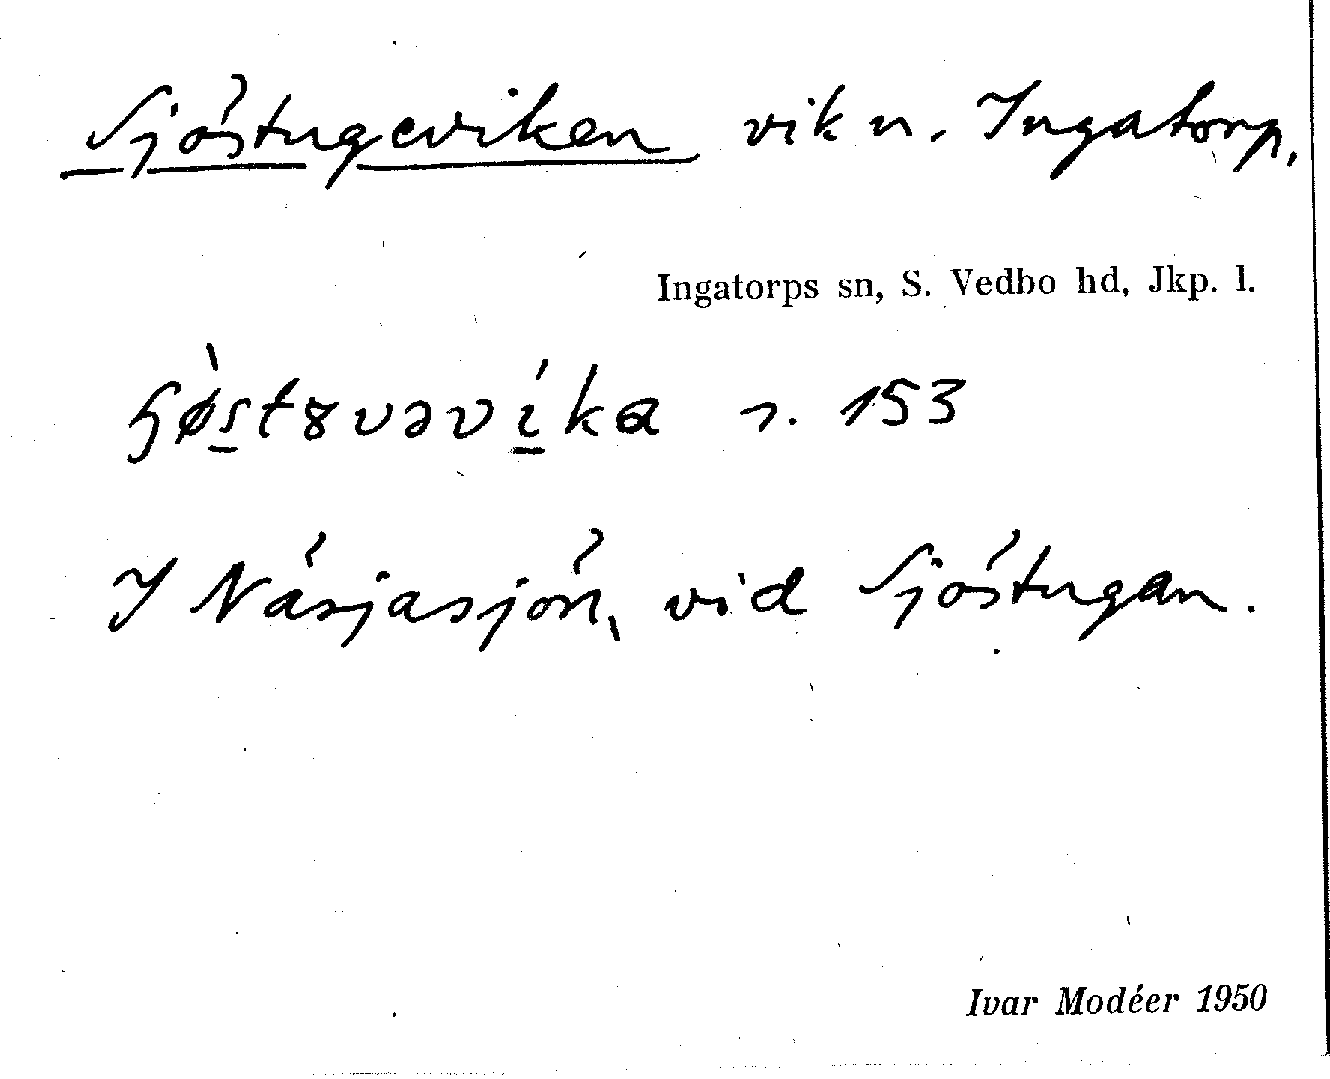 Sjöstugeviken vik n. Ingatorp,
Ingatorps sn, S. Vedbo hd, Jkp. l.
ɧø̀s̲tȣvəví̲ka r. 153
I Näsjasjön, vid Sjöstugan.
Ivar Modéer 1950